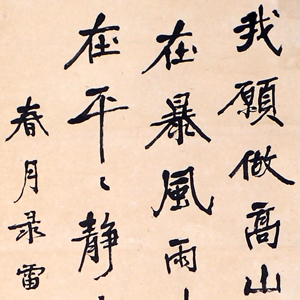 我願做高山
在暴風雨
在平〻靜
春月录雷